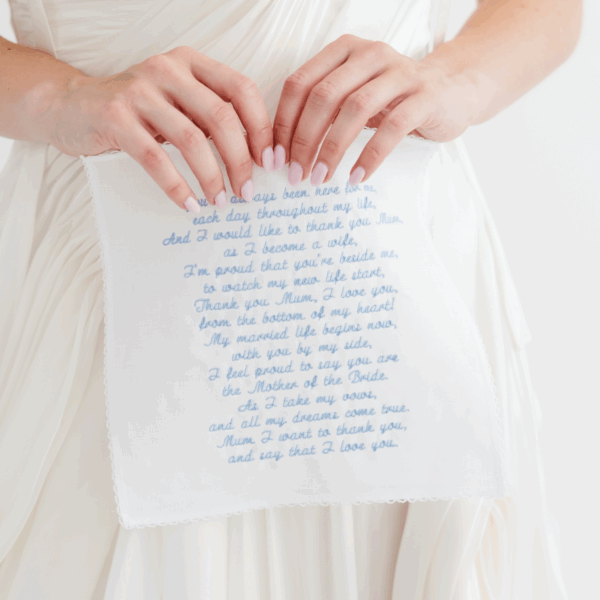 always been here for me,
each day throughout my life,
And I would like to thank you Mum.
as I become a wife,
I'm proud that you're beside me,
to watch my new life start,
Thank you Mum, I love you,
from the bottom of my heart!
My married life begins now,
with you by my side,
I feel proud to say you are
the Mother of the Bride.
As I take my vows,
and all my dreams come true.
Mum I want to thank you,
and say that I love you.